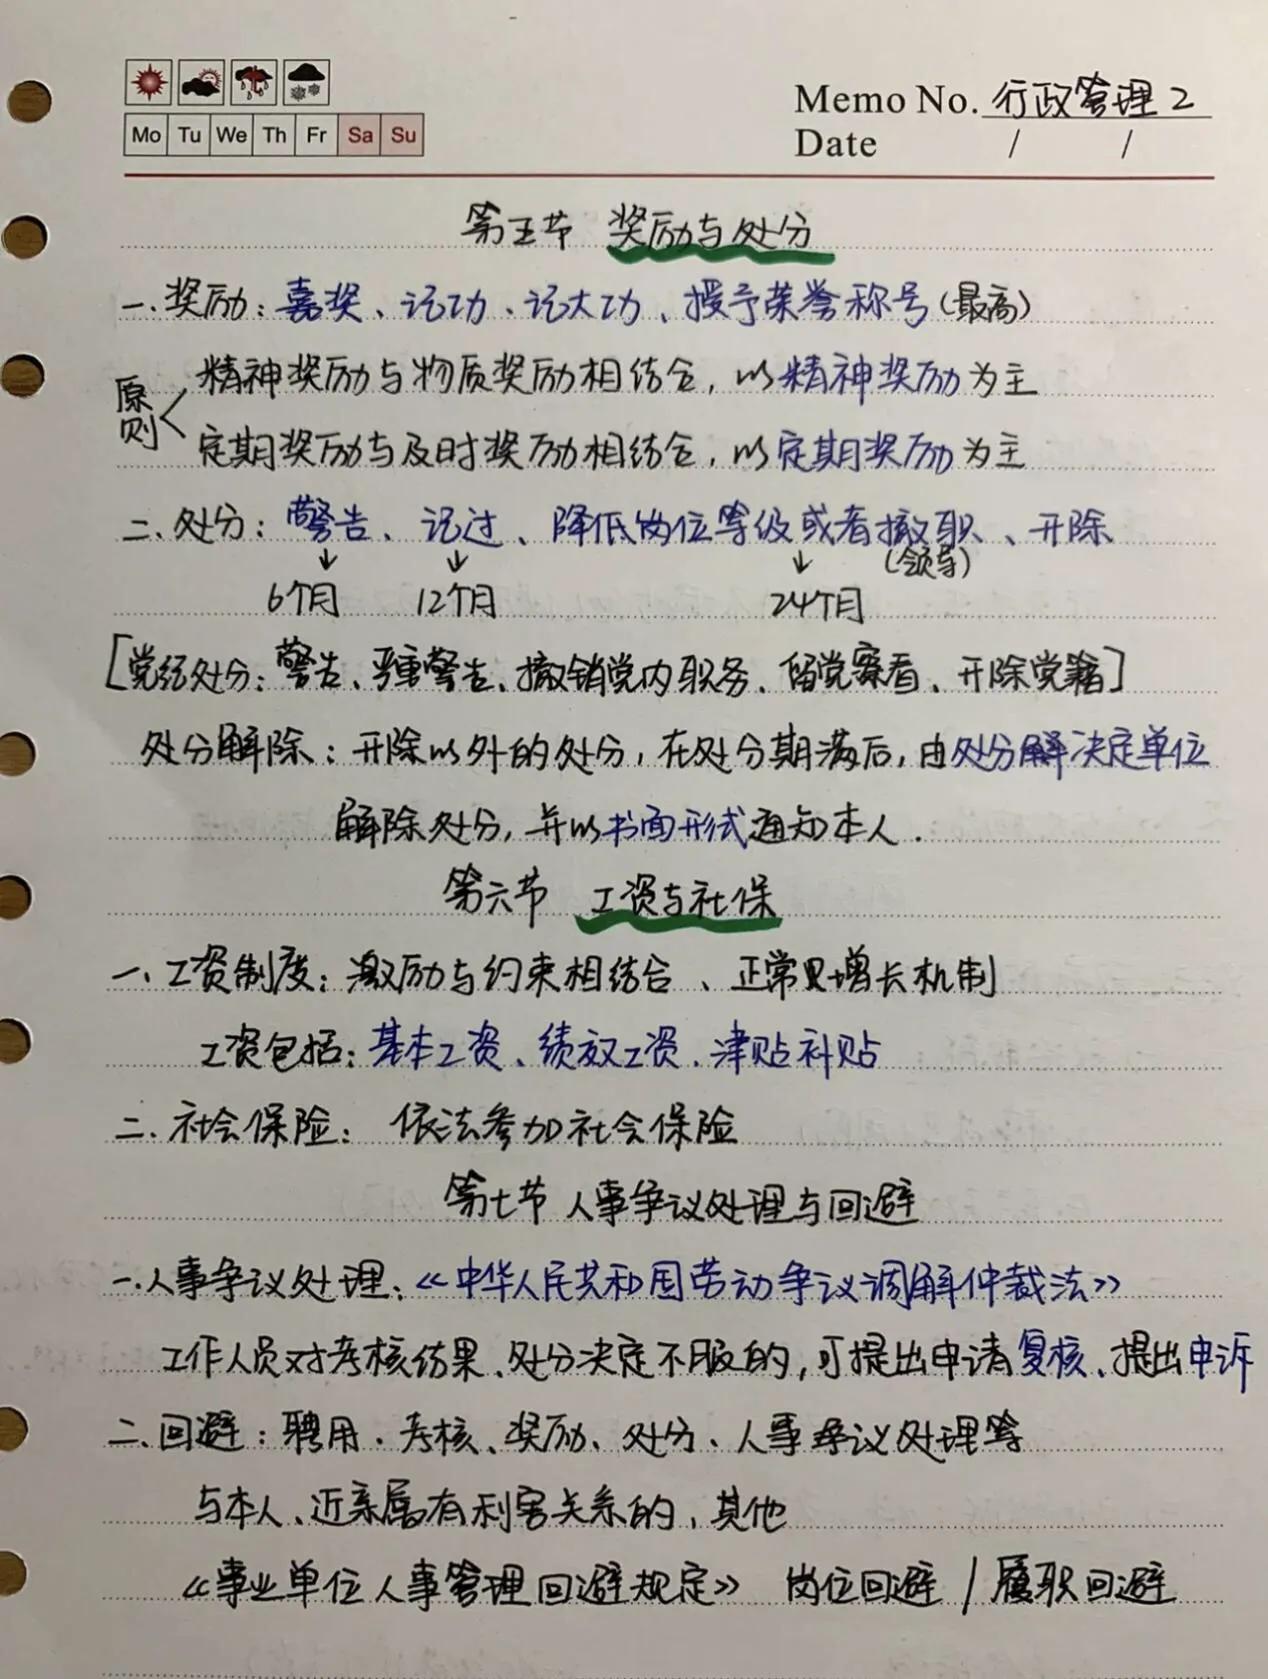 Mo Tu We Th Fr Sa Su
Memo No. 行政管理2
Date / /
第五节 奖励与处分
一.奖励:嘉奖、记功、记大功、授予荣誉称号(最高)
原则
精神奖励与物质奖励相结合,以精神奖励为主
定期奖励与及时奖励相结合,以定期奖励为主
二.处分:警告、记过、降低岗位等级或者撤职、开除
(领导)
↓ ↓ ↓
6个月 12个月 24个月
[党纪处分:警告、严重警告、撤销党内职务、留党察看、开除党籍]
处分解除:开除以外的处分,在处分期满后,由处分解决定单位
解除处分,并以书面形式通知本人.
第六节 工资与社保
一.工资制度:激励与约束相结合、正常增长机制
工资包括:基本工资、绩效工资、津贴补贴
二.社会保险: 依法参加社会保险
第七节 人事争议处理与回避
一.人事争议处理:《中华人民共和国劳动争议调解仲裁法》
工作人员对考核结果、处分决定不服的,可提出申请复核、提出申诉
二.回避:聘用、考核、奖励、处分、人事争议处理等
与本人、近亲属有利害关系的,其他
《事业单位人事管理回避规定》 岗位回避/履职回避